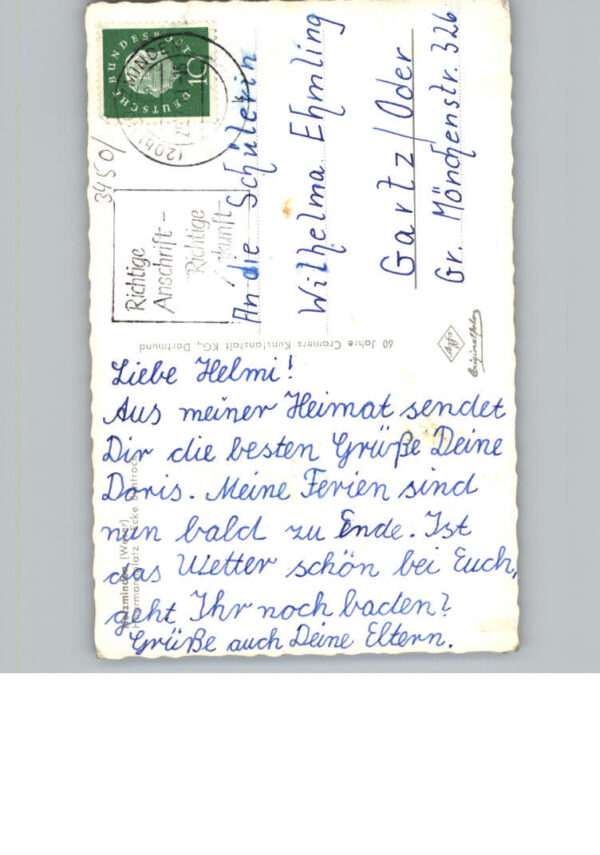 DEUTSCHE BUNDESPOST
10
(20b)
3450/
Richtige
Anschrift-
Richtige
An die Schülerin
Wilhelma Ehmling
Gartz/Oder
Gr. Mönchenstr. 326
60 Jahre Cramers Kunstanstalt KG., Dortmund
Agfa
Originalfoto
Liebe Helmi!
Aus meiner Heimat sendet
Dir die besten Grüße Deine
Doris. Meine Ferien sind
nun bald zu Ende. Ist
das Wetter schön bei Euch,
geht Ihr noch baden?
Grüße auch Deine Eltern.
Holzminden (Weser)